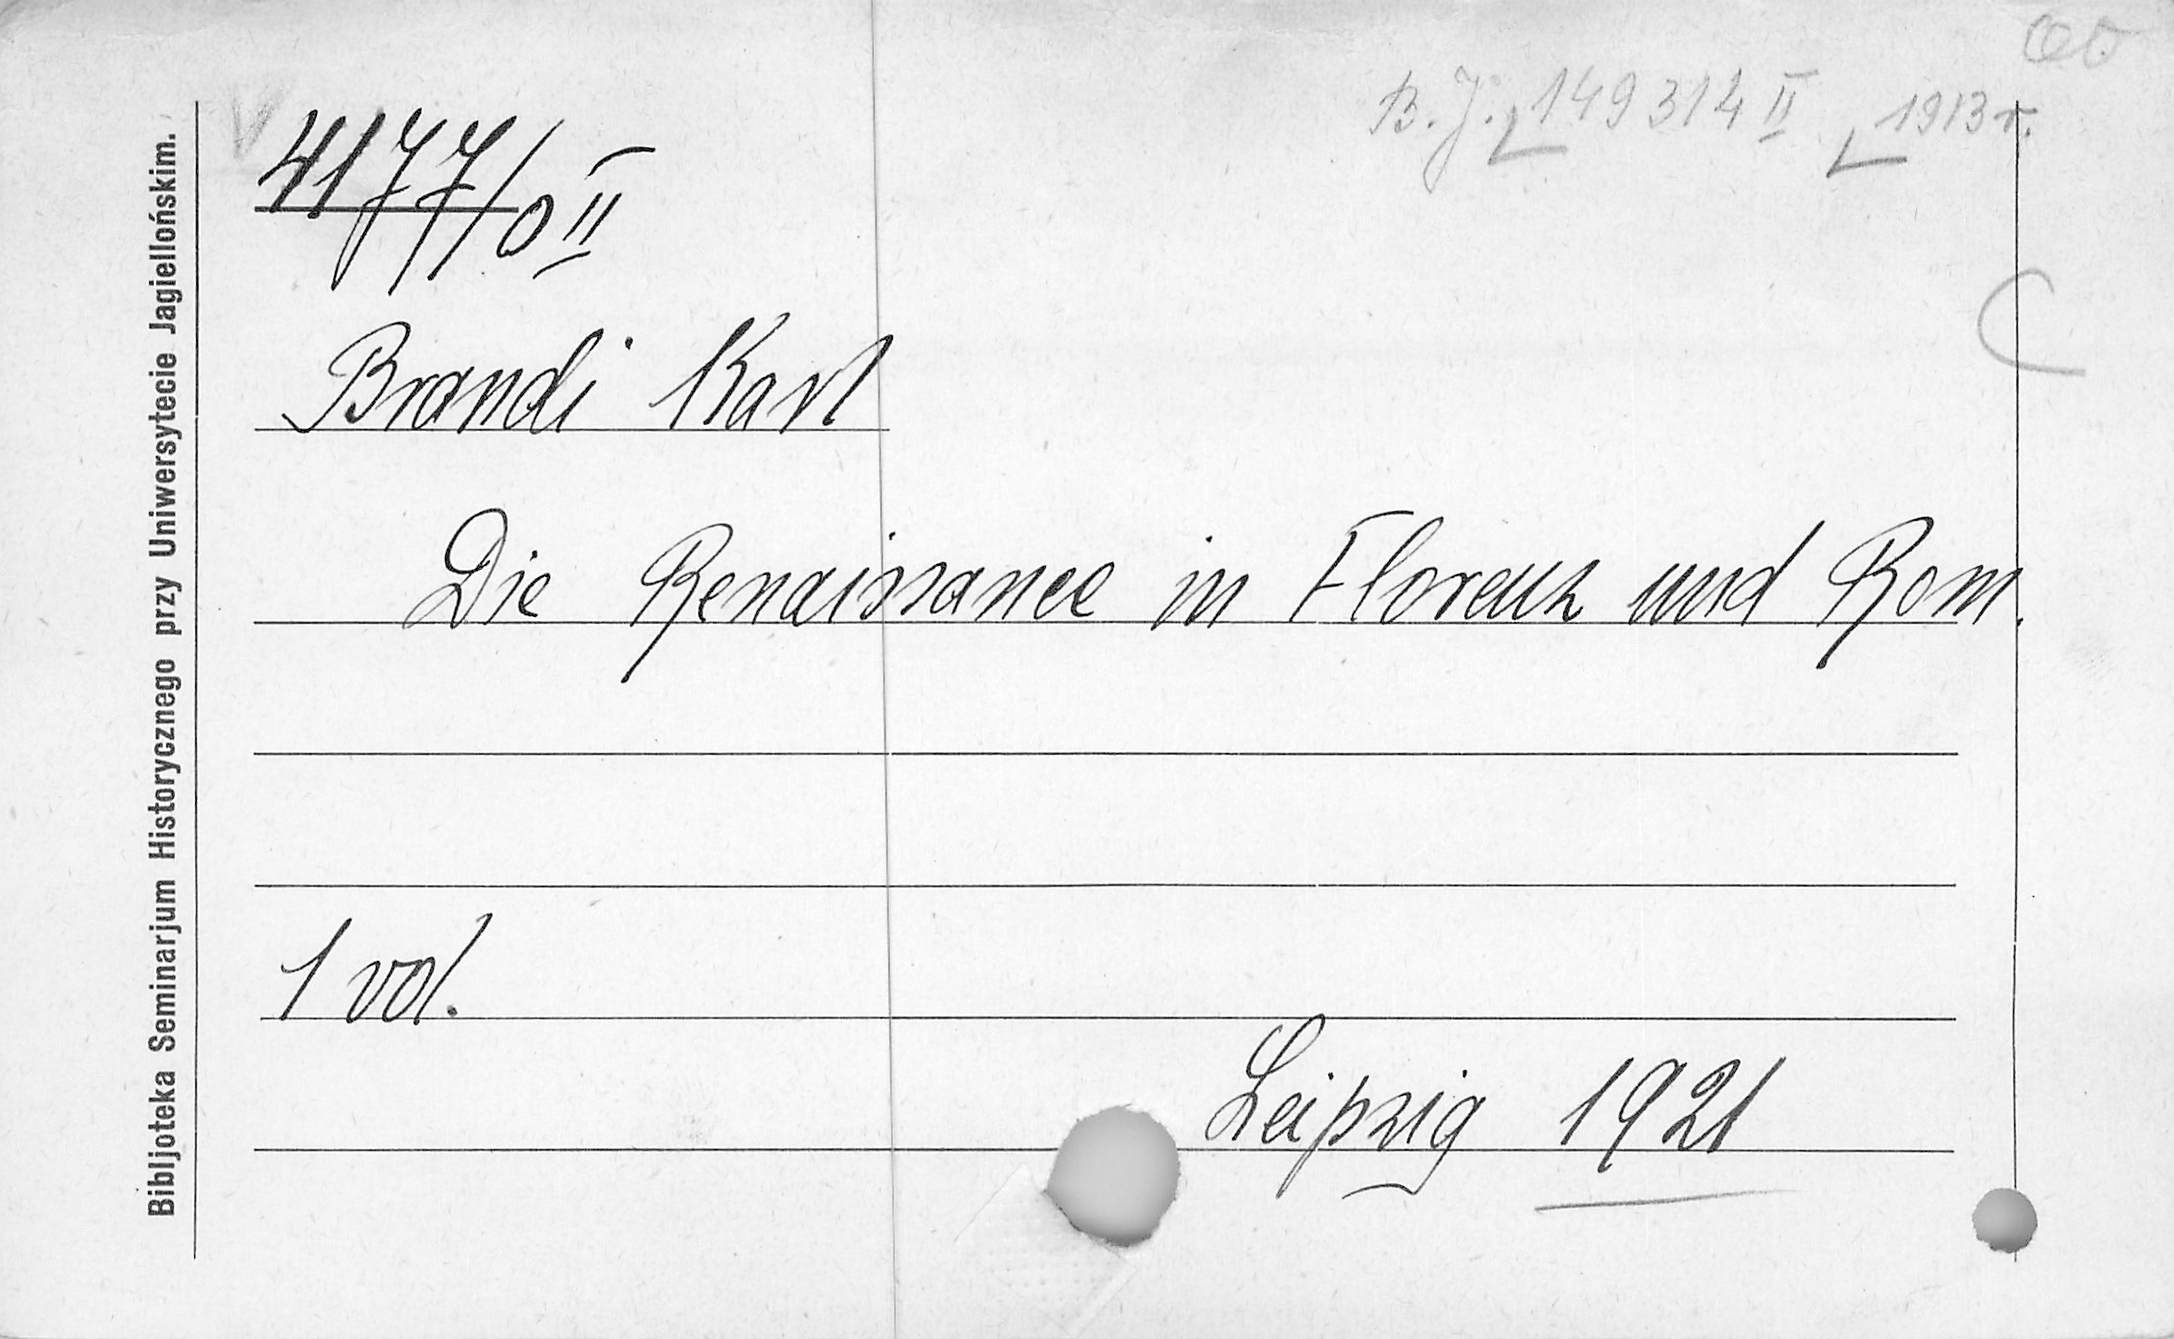 B. J. 149314 II 1913 r.
4177/0 II
Brandi Karl
Die Renaissance in Florenz und Rom.
1 vol.
Leipzig 1921
Bibljoteka Seminarjum Historycznego przy Uniwersytecie Jagiellońskim.